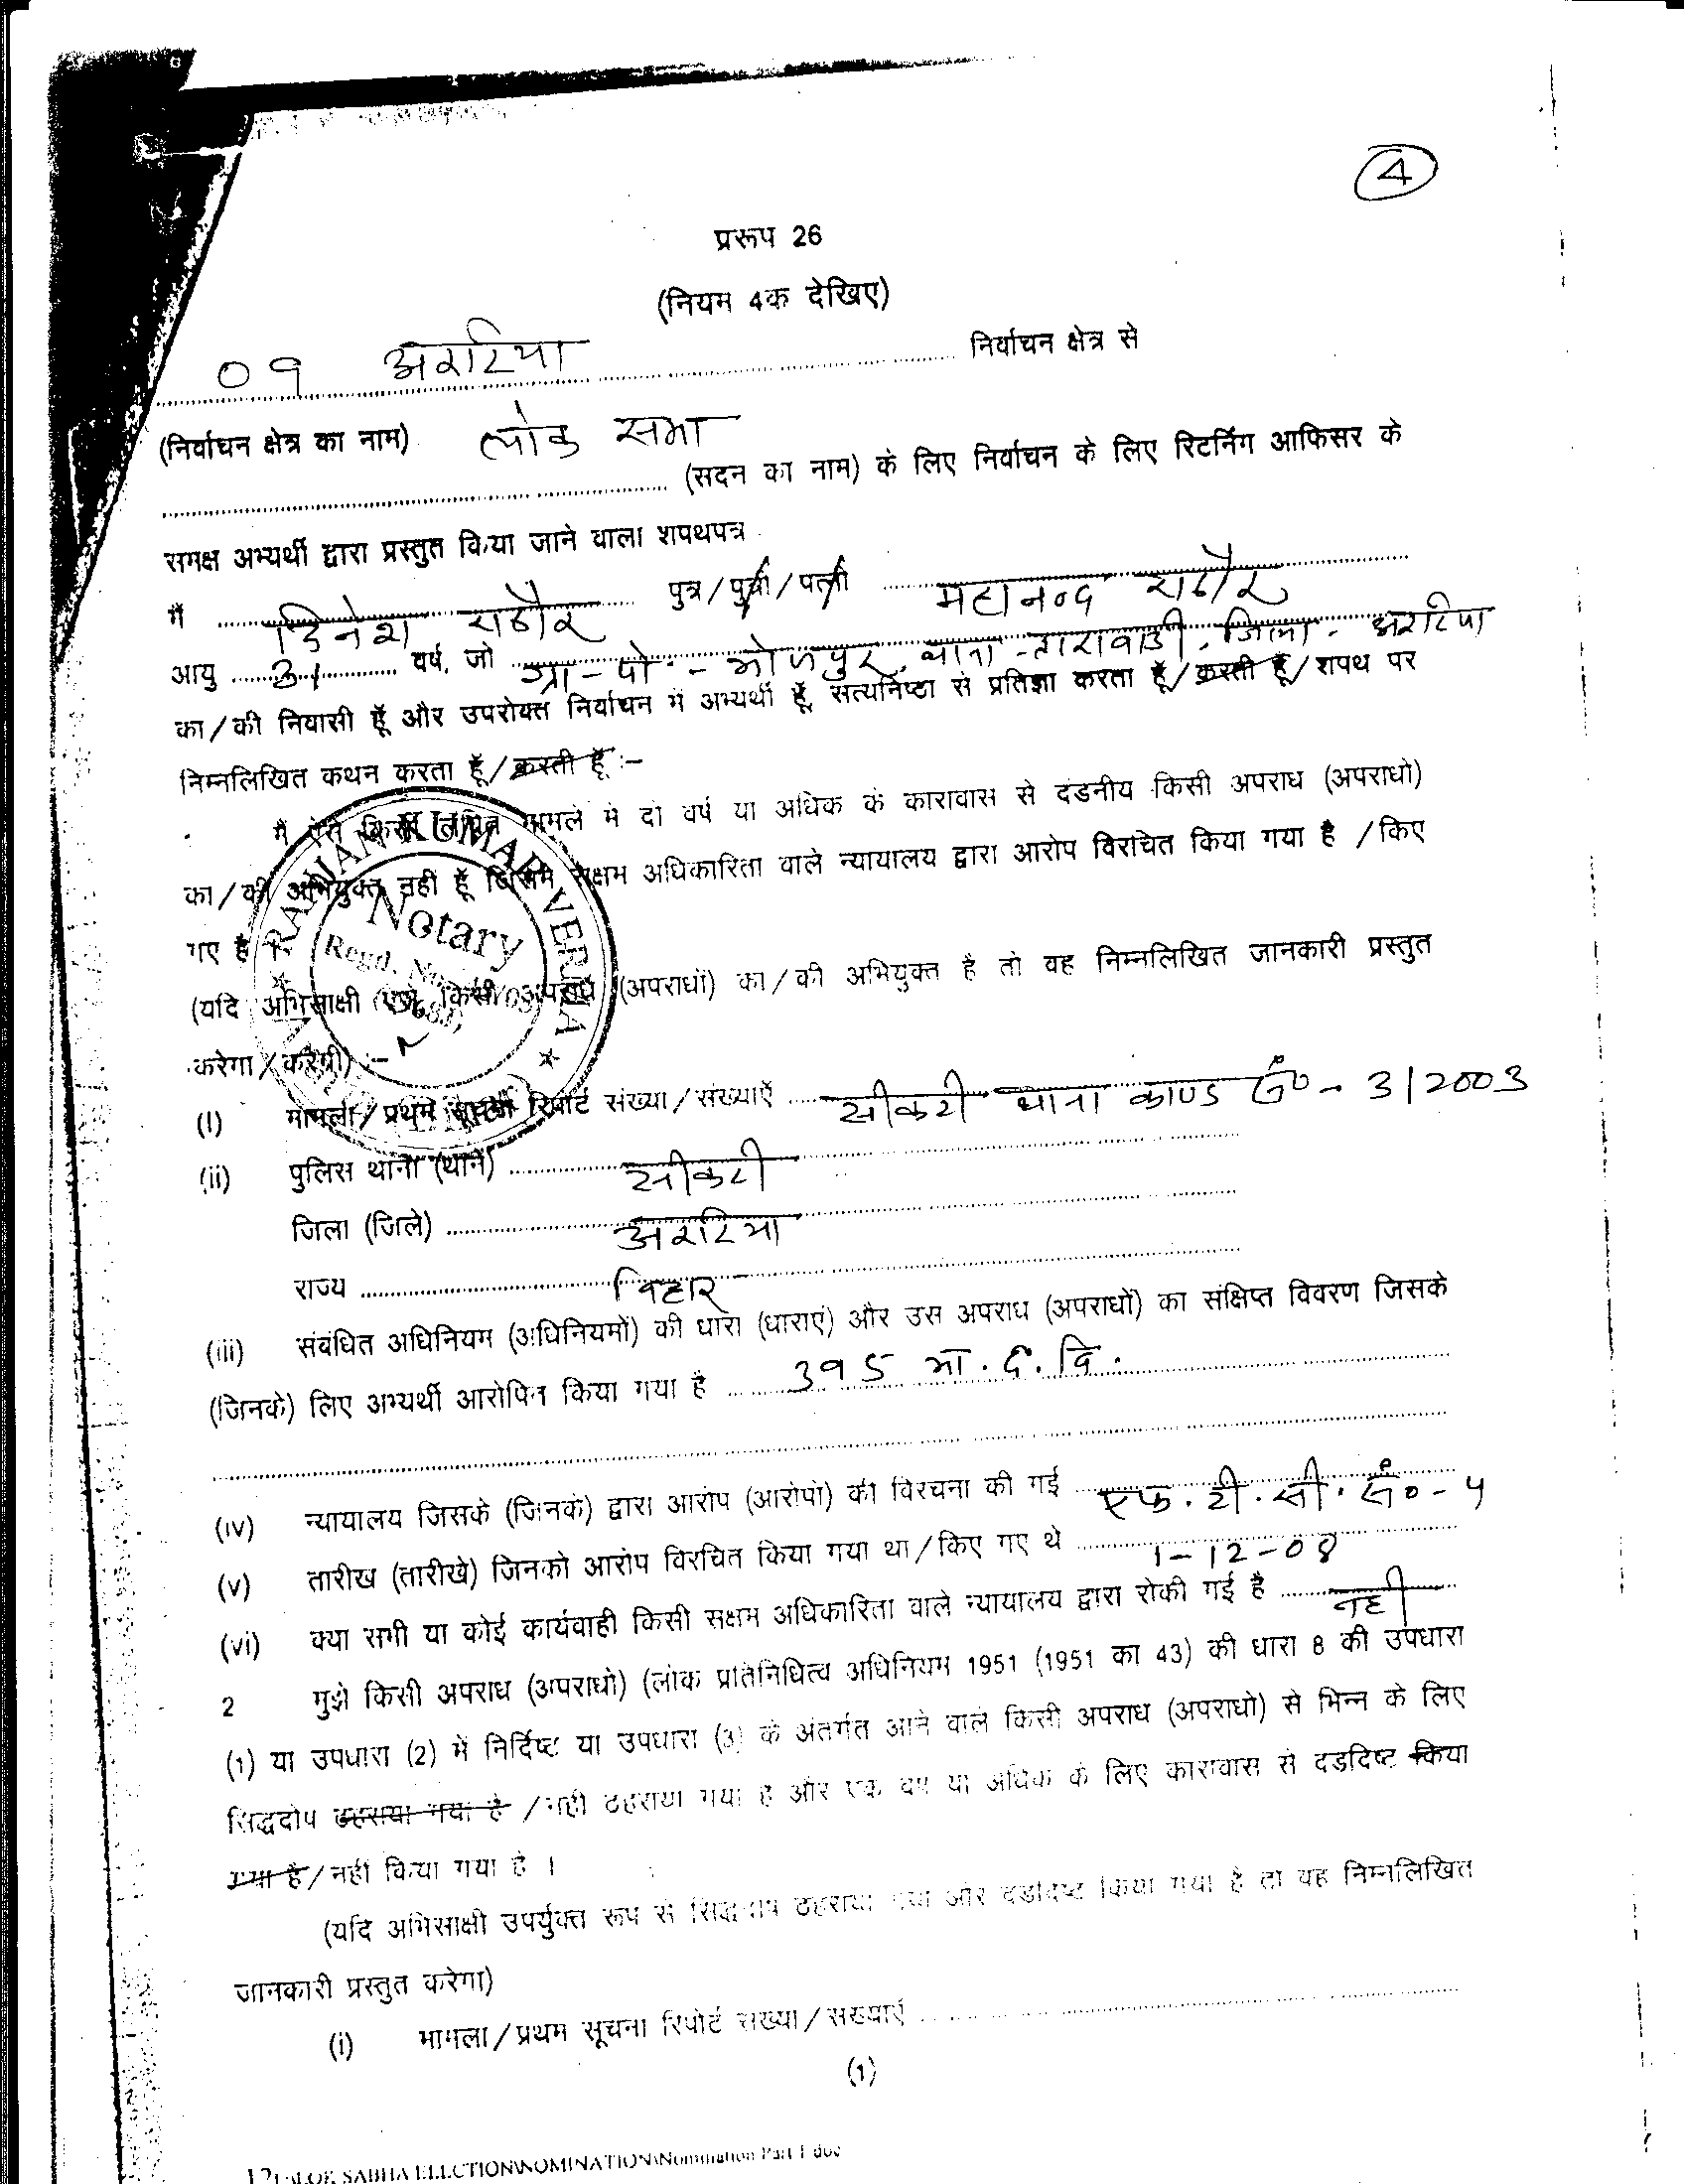 4
प्ररूप 26
(नियम 4क देखिए)
09 अररिया निर्वाचन क्षेत्र से
(निर्वाचन क्षेत्र का नाम) लोक सभा
(सदन का नाम) के लिए निर्वाचन के लिए रिटर्निंग आफिसर के
समक्ष अभ्यर्थी द्वारा प्रस्तुत किया जाने वाला शपथपत्र
मैं दिनेश राठौर पुत्र/पुत्री/पत्नी महानन्द राठौर
आयु 31 वर्ष, जो ग्रा-पो-भोजपुर, थाना-तारावाडी, जिला-अररिया
का/की निवासी हूँ और उपरोक्त निर्वाचन में अभ्यर्थी हूँ, सत्यनिष्ठा से प्रतिज्ञा करता हूँ/करती हूँ/शपथ पर
निम्नलिखित कथन करता हूँ/करती हूँ :-
मैं ऐसे किसी लंबित मामले में दो वर्ष या अधिक के कारावास से दंडनीय किसी अपराध (अपराधो)
का/की अभियुक्त नहीं हूँ जिसमें सक्षम अधिकारिता वाले न्यायालय द्वारा आरोप विरचित किया गया है /किए
गए है
(यदि अभिसाक्षी ऐसे किसी अपराध (अपराधों) का/की अभियुक्त है तो वह निम्नलिखित जानकारी प्रस्तुत
करेगा/करेगी) :-
RANJAN KUMAR VERMA
Notary
Regd. No.
(i) मामला/प्रथम सूचना रिपोर्ट संख्या/संख्याएँ सीकटी थाना काण्ड सं०-3/2003
(ii) पुलिस थाना (थाने) सीकटी
जिला (जिले) अररिया
राज्य बिहार
(iii) संबंधित अधिनियम (अधिनियमों) की धारा (धाराएं) और उस अपराध (अपराधों) का संक्षिप्त विवरण जिसके
(जिनके) लिए अभ्यर्थी आरोपित किया गया है 395 भा.द.वि.
(iv) न्यायालय जिसके (जिनके) द्वारा आरोप (आरोपों) की विरचना की गई एफ.टी.सी.सं०-5
(v) तारीख (तारीखे) जिनको आरोप विरचित किया गया था/किए गए थे 1-12-08
(vi) क्या सभी या कोई कार्यवाही किसी सक्षम अधिकारिता वाले न्यायालय द्वारा रोकी गई है नही
2 मुझे किसी अपराध (अपराधो) (लोक प्रतिनिधित्व अधिनियम 1951 (1951 का 43) की धारा 8 की उपधारा
(1) या उपधारा (2) में निर्दिष्ट या उपधारा (3) के अंतर्गत आने वाले किसी अपराध (अपराधो) से भिन्न के लिए
सिद्धदोष ठहराया गया है /नही ठहराया गया है और एक वर्ष या अधिक के लिए कारावास से दडदिष्ट किया
गया है/नहीं किया गया है ।
(यदि अभिसाक्षी उपर्युक्त रूप से सिद्धदोष ठहराया गया और दडदिष्ट किया गया है तो वह निम्नलिखित
जानकारी प्रस्तुत करेगा)
(i) मामला/प्रथम सूचना रिपोर्ट संख्या/संख्याएँ
(1)
LOK SABHA ELECTION\NOMINATION\Nomination Part I doc